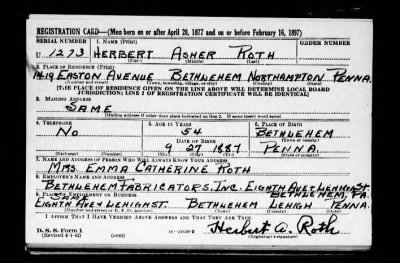 REGISTRATION CARD—(Men born on or after April 28, 1877 and on or before February 16, 1897)
SERIAL NUMBER 1. NAME (Print) ORDER NUMBER
U 1273 HERBERT ASHER ROTH
(First) (Middle) (Last)
2. PLACE OF RESIDENCE (Print)
1419 EASTON AVENUE BETHLEHEM NORTHAMPTON PENNA.
(Number and street) (Town, township, village, or city) (County) (State)
[THE PLACE OF RESIDENCE GIVEN ON THE LINE ABOVE WILL DETERMINE LOCAL BOARD
JURISDICTION; LINE 2 OF REGISTRATION CERTIFICATE WILL BE IDENTICAL]
3. MAILING ADDRESS
SAME
[Mailing address if other than place indicated on line 2. If same insert word same]
4. TELEPHONE 5. AGE IN YEARS 6. PLACE OF BIRTH
NO 54 BETHLEHEM
DATE OF BIRTH
9 27 1887 PENNA.
7. NAME AND ADDRESS OF PERSON WHO WILL ALWAYS KNOW YOUR ADDRESS
MRS. EMMA CATHERINE ROTH
8. EMPLOYER'S NAME AND ADDRESS
BETHLEHEM FABRICATORS, INC. EIGHTH AVE & LEHIGH ST.
BETHLEHEM, PA.
9. PLACE OF EMPLOYMENT OR BUSINESS
EIGHTH AVE & LEHIGH ST. BETHLEHEM LEHIGH PENNA.
(Number and street or R. F. D. number) (Town) (County) (State)
I AFFIRM THAT I HAVE VERIFIED ABOVE ANSWERS AND THAT THEY ARE TRUE.
D. S. S. Form 1
(Revised 4-1-42) (over)
Herbert A. Roth